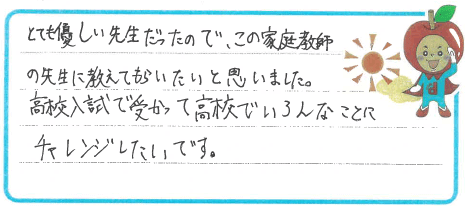 とても優しい先生だったので、この家庭教師
の先生に教えてもらいたいと思いました。
高校入試で受かって高校でいろんなことに
チャレンジしたいです。